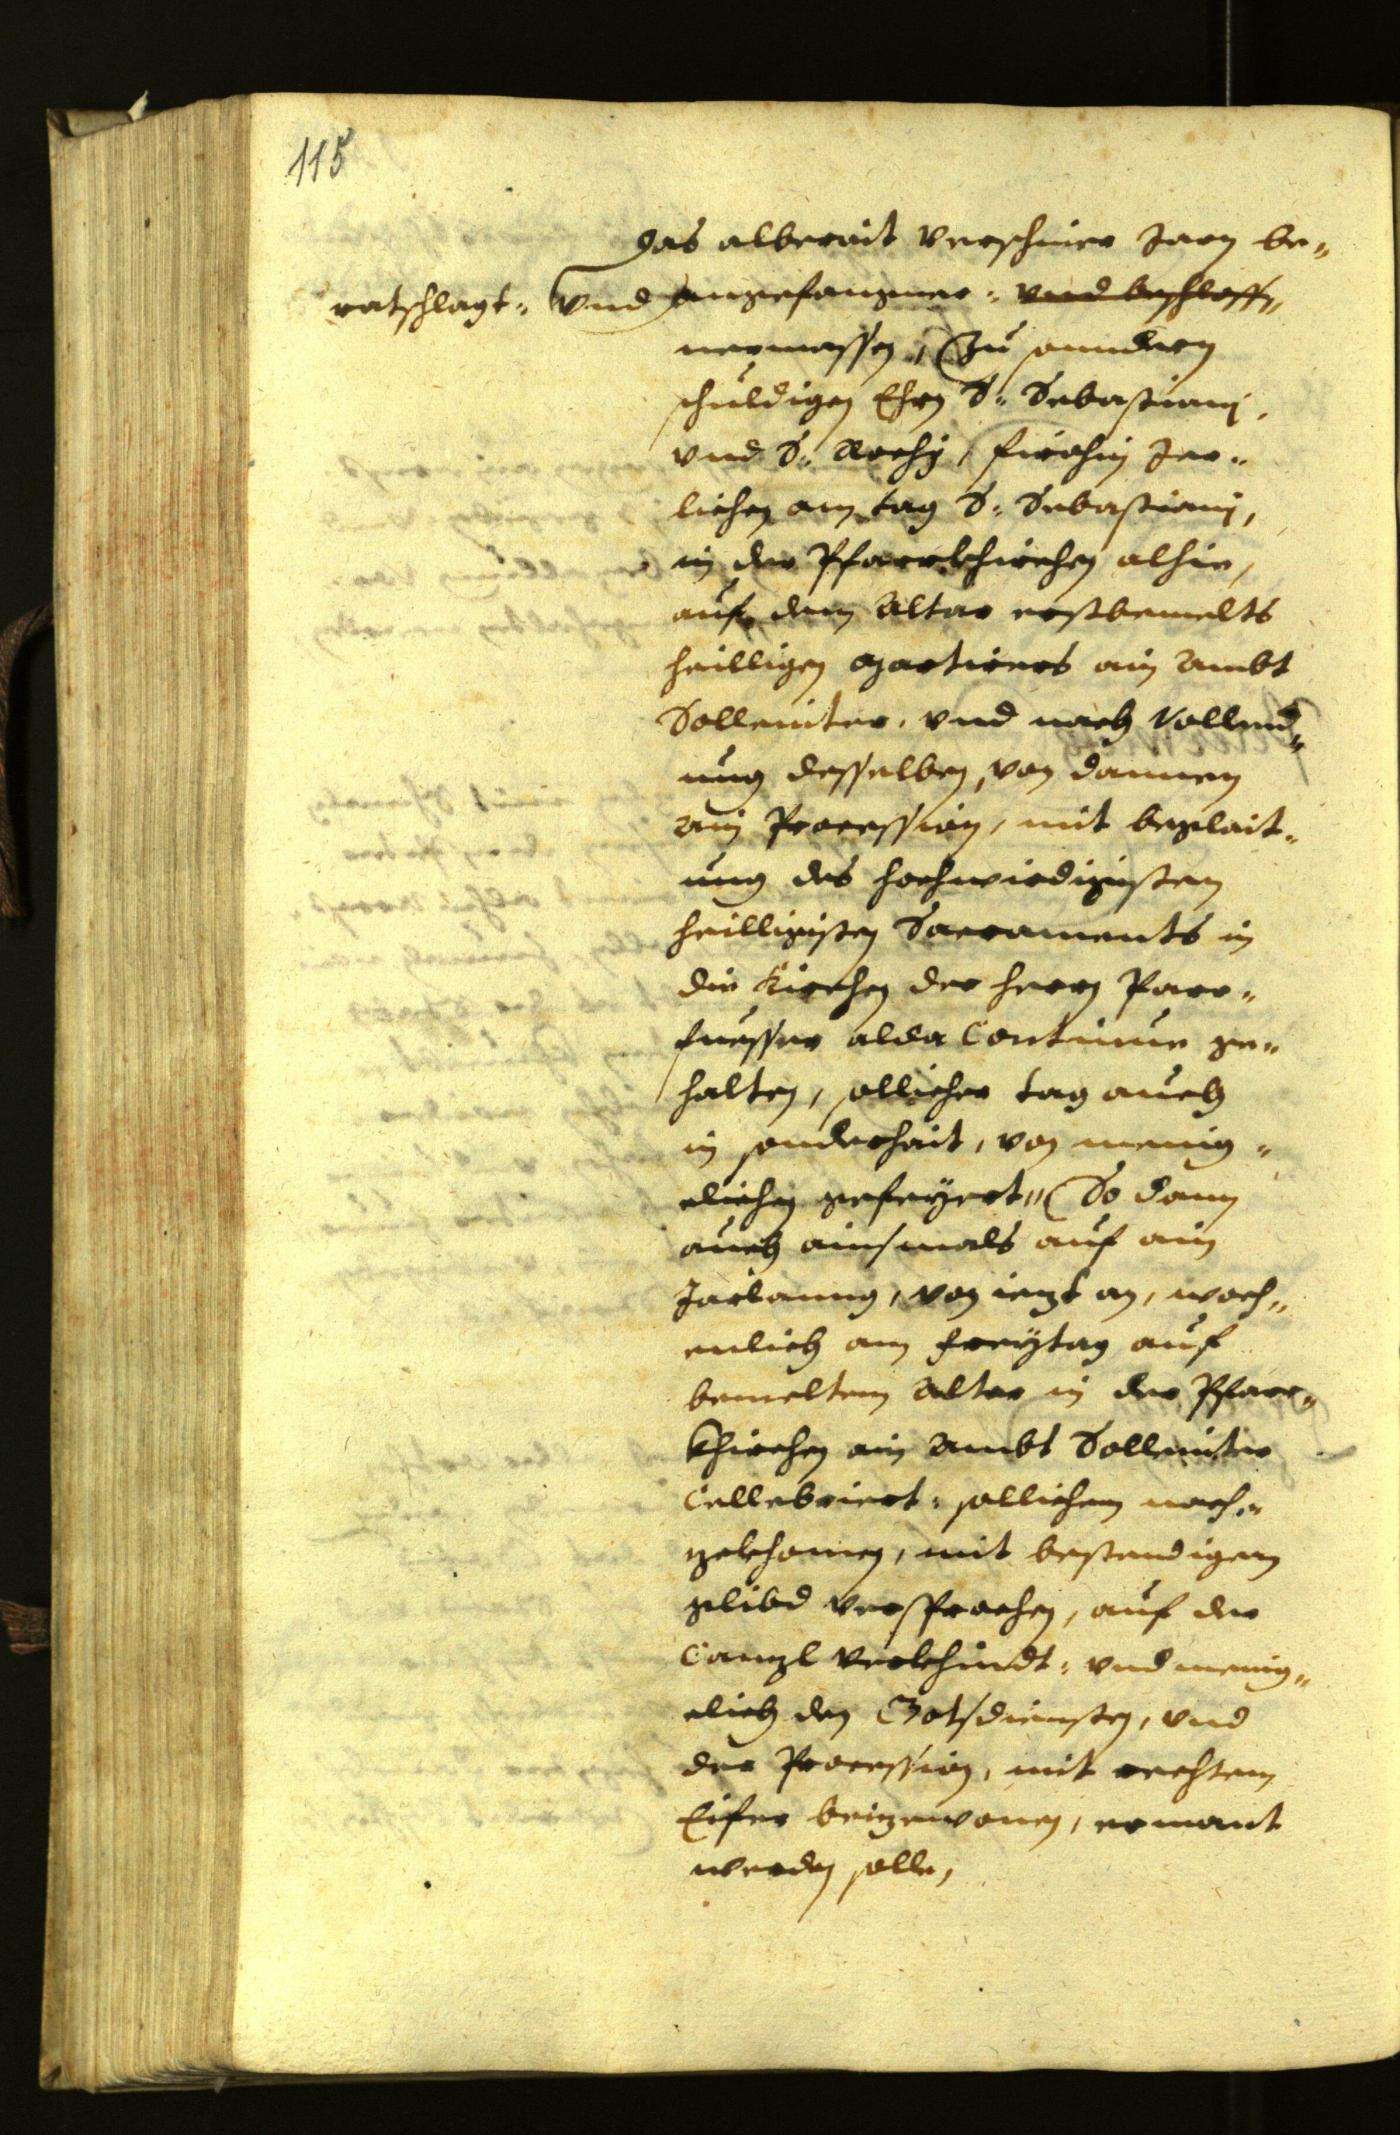 115
Das alberait verschiner Jarn be„
ratschlagt„ vnd angefangner„ vnd beschloss„
nermassen, Zu sonndern
schuldigen Ehrn S: Sebastianj,
vnd S: Rochj, firohin Jer„
lichen am tag S: Sebastianj,
in der Pfarrkhirchen alhie,
auf dem Altar erstbemelts
heilligen Martirers ain Ambt
Solleniter, vnd nach Vollend„
ung desselben, von dannen
ain Procession, mit beglait„
ung des hochwirdigisten
heilligisten Sacraments in
die Kirchen der herrn Parr„
fuesser alda Continue ge„
halten, sollicher tag auch
in sonderhait, von menig„
clichen gefeyert„ So dann
auch ainsmals auf ain
Jarlanng, von iezt an, woch„
enlich am freytag auf
bemeltem Altar in der Pfarr„
khirchen ain Ambt Solleniter
Cellebriert„ sollichem nach„
gekhomen, mit bestendigem
glibd versprochen, auf der
Canzl verkhindt„ vnd menig„
clich den Gotsdiensten, vnd
der Procession, mit rechtem
Eifer beizewonen, ermant
werden solle,